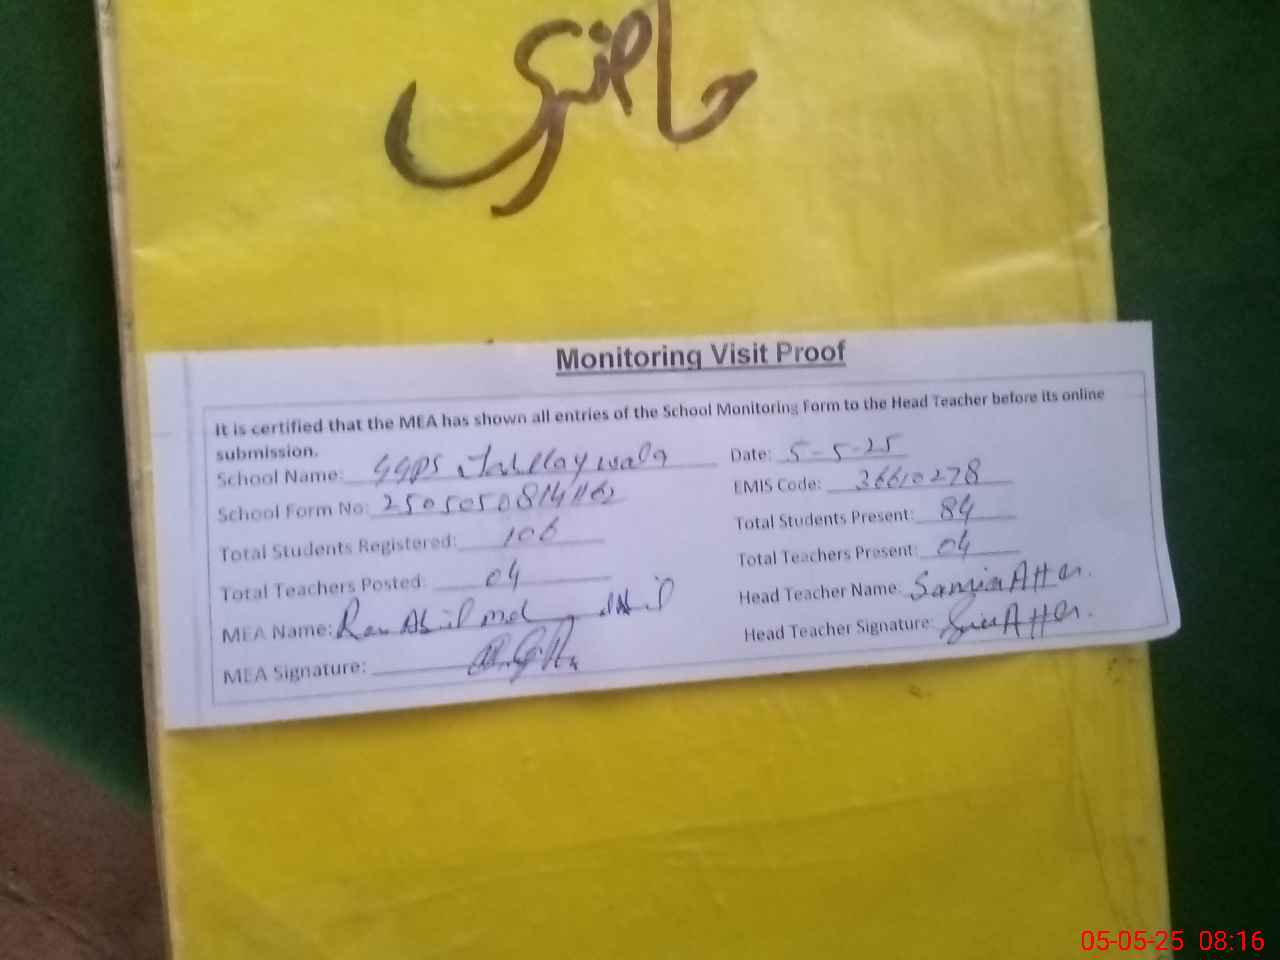 حاضری
Monitoring Visit Proof
It is certified that the MEA has shown all entries of the School Monitoring Form to the Head Teacher before its online
submission.
School Name: GGPS
Date: 5-5-25
School Form No:
EMIS Code: 36610278
Total Students Registered: 106
Total Students Present: 84
Total Teachers Posted: 04
Total Teachers Present: 04
MEA Name:
Head Teacher Name:
MEA Signature:
Head Teacher Signature:
05-05-25 08:16